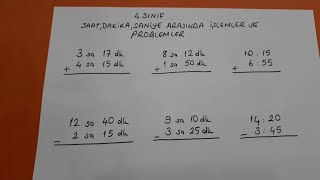 4.SINIF
SAAT,DAKİKA,SANİYE ARASINDA İŞLEMLER VE
PROBLEMLER
3 sa 17 dk
+ 4 sa 15 dk
8 sa 12 dk
+ 1 sa 50 dk
10 : 15
+ 6 : 55
12 sa 40 dk
- 2 sa 15 dk
9 sa 10 dk
- 3 sa 25 dk
14 : 20
- 3 : 45